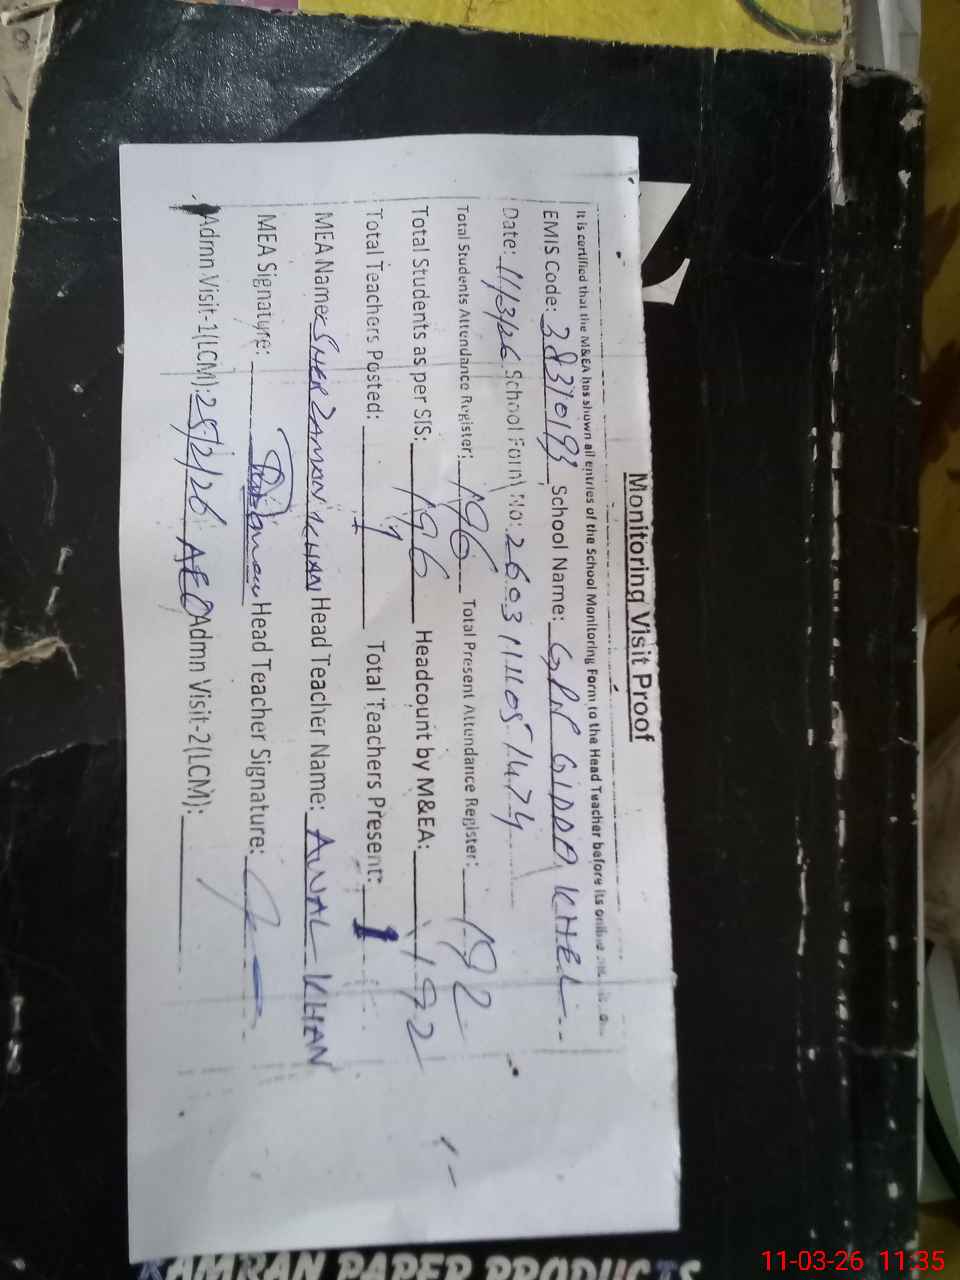 Monitoring Visit Proof
It is certified that the M&EA has shown all entries of the School Monitoring Form to the Head Teacher before its online
EMIS Code: 38310193 School Name: GPS GIDDA KHEL
Date: 11/3/26 School Form No: 26031111051474
Total Students Attendance Register: 196 Total Present Attendance Register: 192
Total Students as per SIS: 196 Headcount by M&EA: 192
Total Teachers Posted: 1 Total Teachers Present: 1
MEA Name: SHER ZAMAN KHAN Head Teacher Name: AWAL KHAN
MEA Signature: Head Teacher Signature:
Admn Visit-1(LCM): 25/2/26 AEO Admn Visit-2(LCM):
KAMRAN PAPER PRODUCTS
11-03-26 11:35